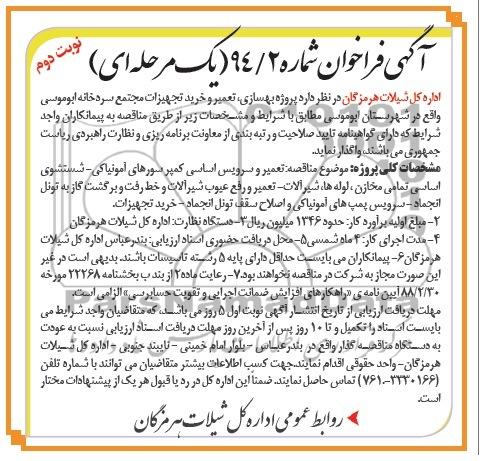 نوبت دوم
آگهی فراخوان شماره ۹۴/۲ (یک مرحله ای)
اداره کل شیلات هرمزگان در نظر دارد پروژه بهسازی، تعمیر و خرید تجهیزات مجتمع سردخانه ابوموسی
واقع در شهرستان ابوموسی مطابق با شرایط و مشخصات زیر از طریق مناقصه به پیمانکاران واجد
شرایط که دارای گواهینامه تایید صلاحیت و رتبه بندی از معاونت برنامه ریزی و نظارت راهبردی ریاست
جمهوری می باشند، واگذار نماید.
مشخصات کلی پروژه: موضوع مناقصه: تعمیر و سرویس اساسی کمپرسورهای آمونیاکی - شستشوی
اساسی تمامی مخازن، لوله ها، شیرآلات - تعمیر و رفع عیوب شیرآلات و خط رفت و برگشت گاز به تونل
انجماد - سرویس پمپ های آمونیاکی و اصلاح سقف تونل انجماد - خرید تجهیزات.
۲- مبلغ اولیه برآورد کار: حدود ۱۳۴۶ میلیون ریال ۳- دستگاه نظارت: اداره کل شیلات هرمزگان
۴- مدت اجرای کار: ۴ ماه شمسی ۵- محل دریافت حضوری اسناد ارزیابی: بندرعباس اداره کل شیلات
هرمزگان ۶- پیمانکاران می بایست حداقل دارای پایه ۵ رسته تاسیسات باشند. بدیهی است در غیر
این صورت مجاز به شرکت در مناقصه نخواهند بود. ۷- رعایت ماده ۲ از بند ب بخشنامه ۲۲۲۶۸ مورخه
۸۸/۲/۳۰ آیین نامه ی «راهکارهای افزایش ضمانت اجرایی و تقویت حسابرسی» الزامی است.
مهلت دریافت ارزیابی از تاریخ انتشار آگهی نوبت اول ۵ روز می باشند، که متقاضیان واجد شرایط می
بایست اسناد را تکمیل و تا ۱۰ روز پس از آخرین روز مهلت دریافت اسناد ارزیابی نسبت به عودت
به دستگاه مناقصه گذار واقع در بندرعباس - بلوار امام خمینی - نایبند جنوبی - اداره کل شیلات
هرمزگان - واحد حقوقی اقدام نمایند. جهت کسب اطلاعات بیشتر متقاضیان می توانند با شماره تلفن
(۰۷۶۱-۳۳۳۰۱۶۶) تماس حاصل نمایند. ضمناً این اداره کل در رد یا قبول هر یک از پیشنهادات مختار
است.
روابط عمومی اداره کل شیلات هرمزگان